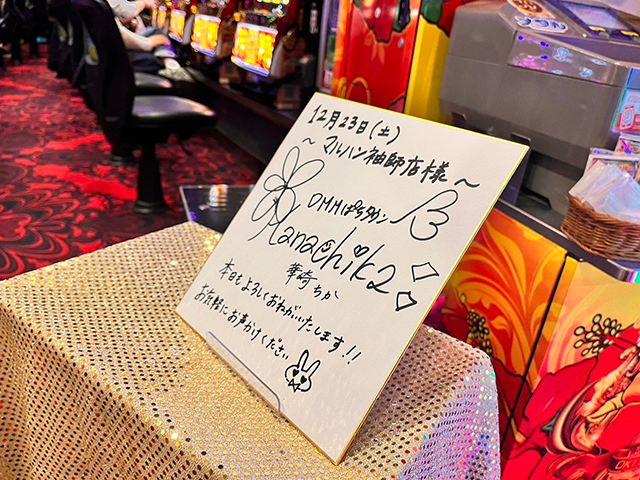 12月23日(土)
～マルハン袖師店様～
DMMぱちタウン
Hanachika
華崎ちか
本日もよろしくおねがいいたします!!
お気軽にお声かけください